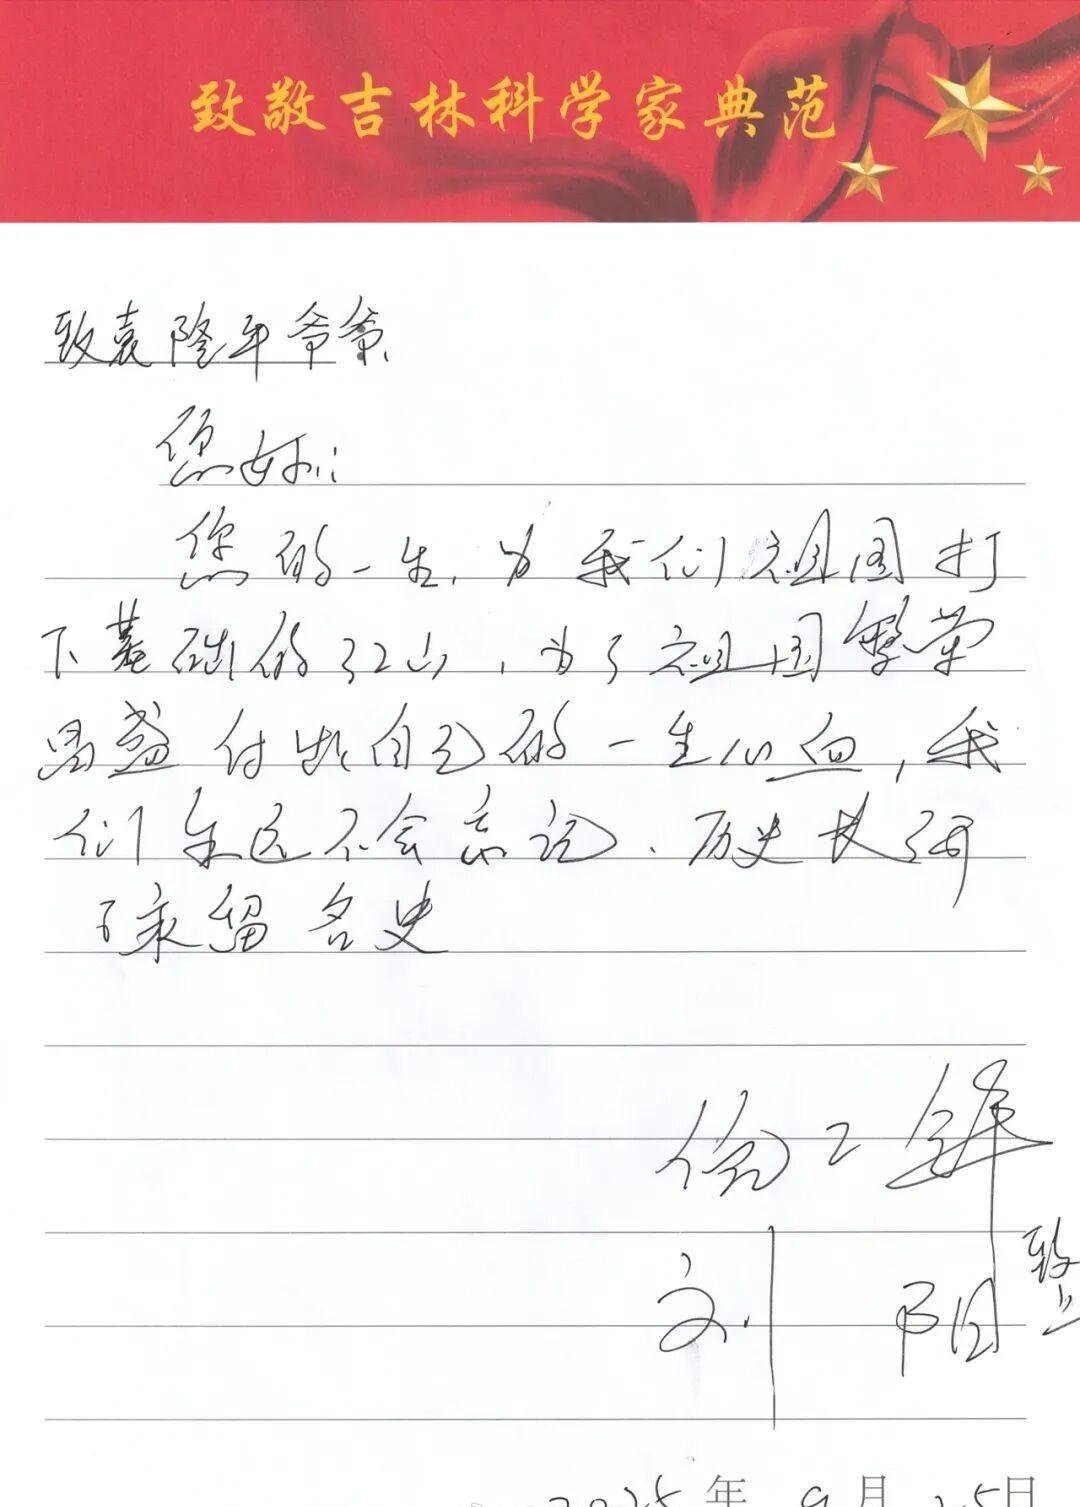 致敬吉林科学家典范
致袁隆平爷爷
您好:
您的一生,为我们祖国打
下基础的江山,为了祖国繁荣
昌盛付出自己的一生心血,我
们永远不会忘记.历史长河
永留名史
刘阳
致上
2025年9月25日